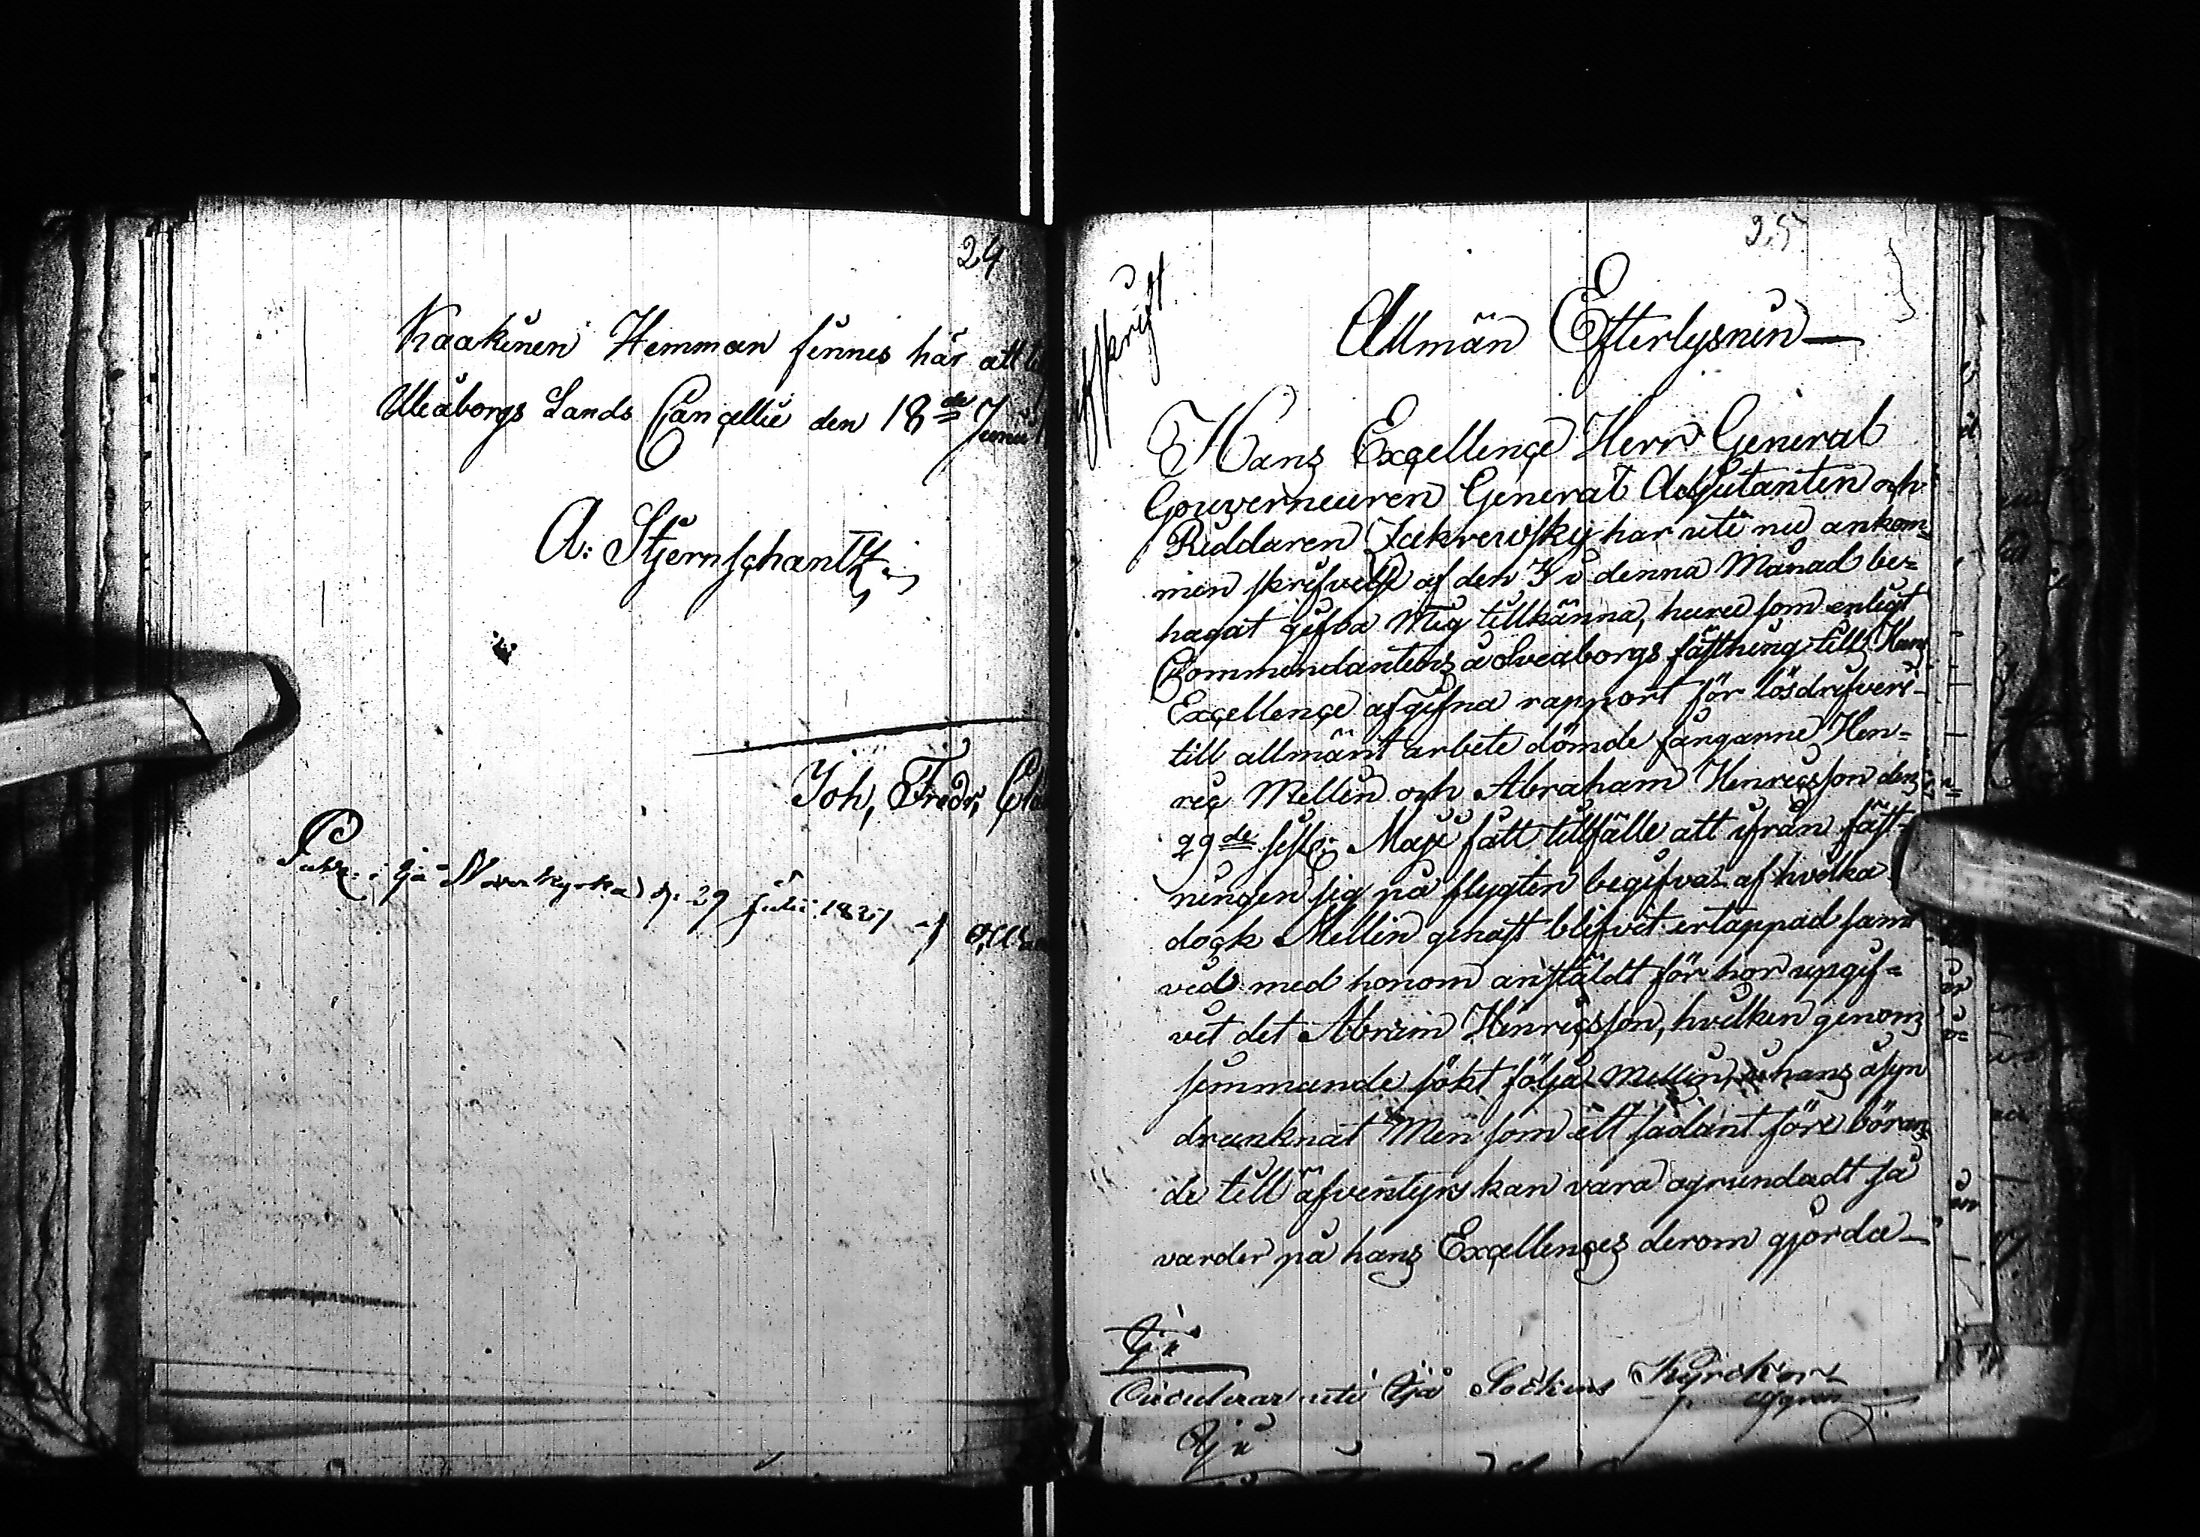 24
Kaakinen Hemman finnes här att
Uleåborgs Lands Cançellie den 18de Junii
A: Stjernschantz
Joh, Fredr,
Publ. i Ijå Moderkyrka d. 29 Julii 1827 af
25
Afskrift
Allmän Efterlysnin
Hans Exçellençe Herr General
Gouverneuren General Adjutanten och
Riddaren Zakrewsky har uti nu ankom-
men skrifvelse af den 3 i denna Månad be-
hagat gifva Mig tillkänna, huru som enligt
Commendantens å Sveaborgs fästning till Hans
Exçellençe afgifna rapport för lösdrifveri
till allmänt arbete dömde fångarne Hen-
riç Mellin och Abraham Henriçsson den
29de sistl: Maji fått tillfälle att ifrån fäst-
ningen sig på flygten begifva af hvilka
doçk Mellin genast blifvit ertappad samt
vid med honom anstäldt för hör upgif-
vit det Abram Henriçsson, hvilken genom
simmande sökt följa Mellin, i hans åsyn
drunknat Men som ett sådant före böran
de till äfventyrs kan vara ogrundadt så
varder på hans Exçellençes derom gjorda
Ijå
Circulerar uti Ijå Sockens
Ijå